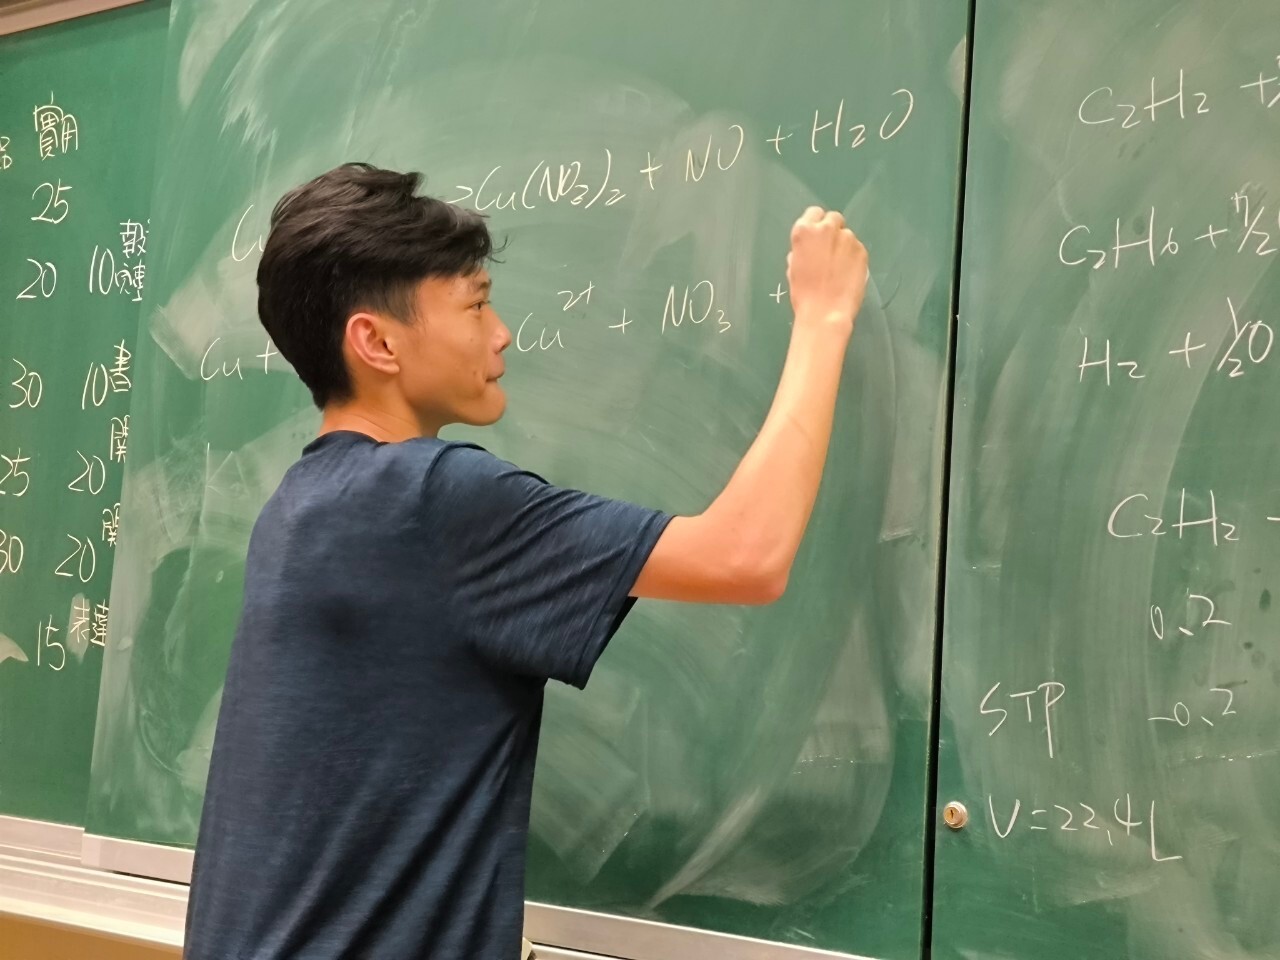 實用
25
20 10
30 10 書
25 20
30 20
15 表達
Cu → Cu(NO3)2 + NO + H2O
Cu + Cu²⁺ + NO3 +
C2H2 +
C2H6 + 7/2
H2 + 1/2 O
C2H2
0.2
STP -0.2
V=22.4L